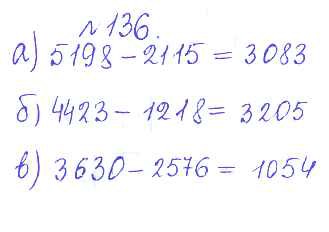 №136.
а) 5198 - 2115 = 3083
б) 4423 - 1218 = 3205
в) 3630 - 2576 = 1054